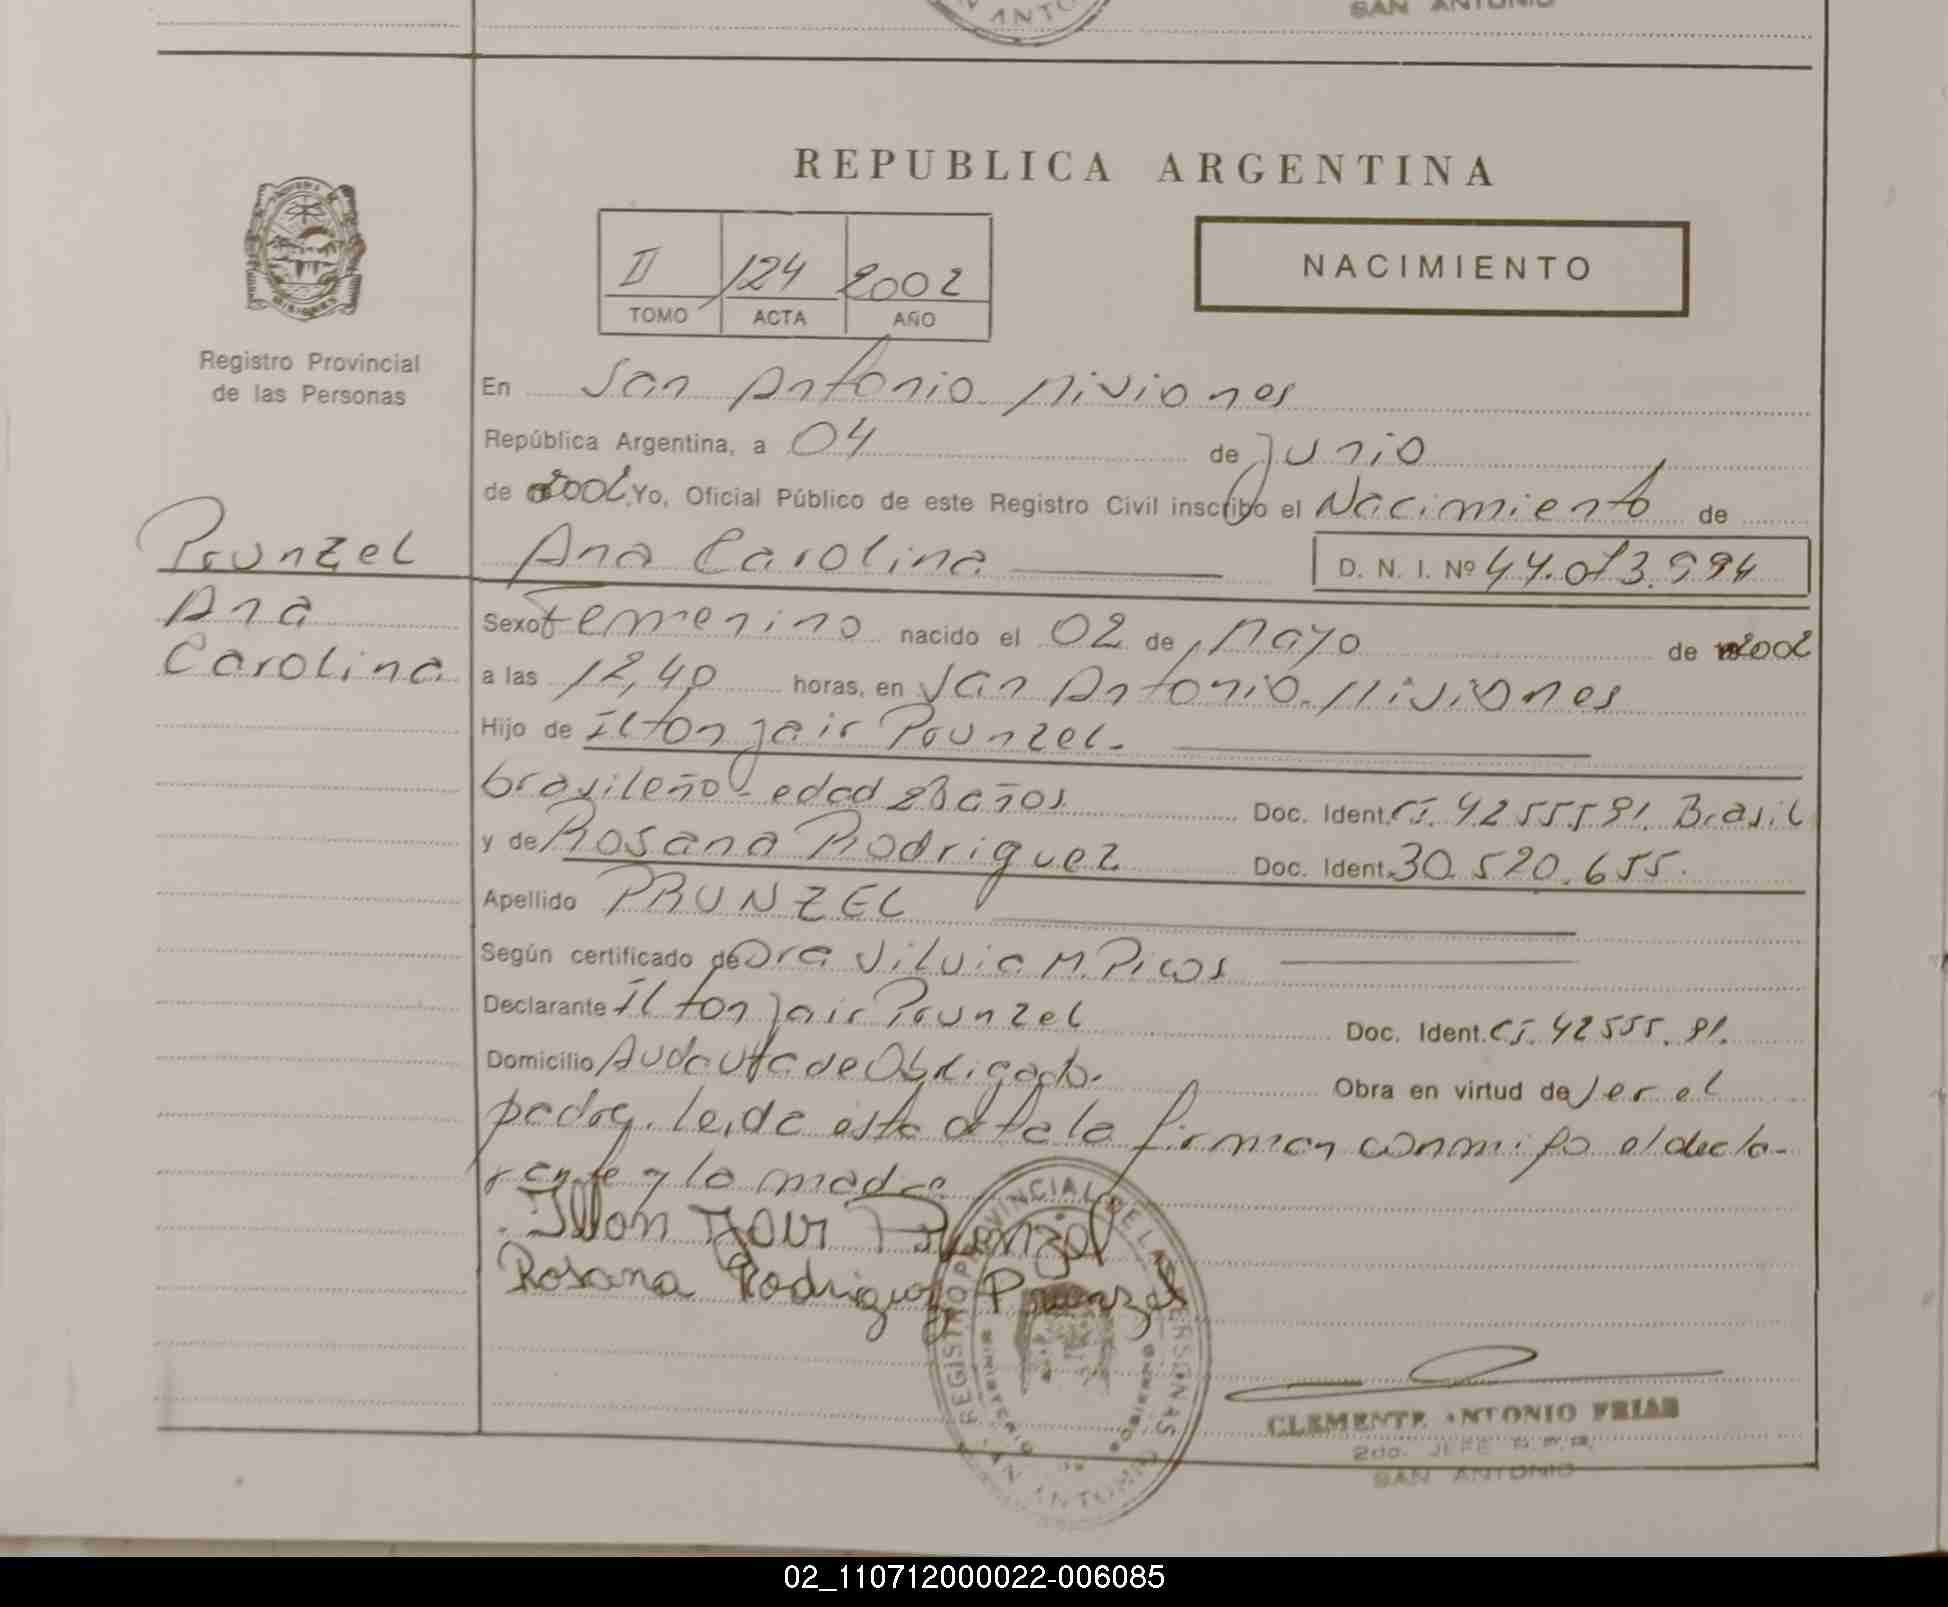 SAN ANTONIO
REPUBLICA ARGENTINA
NACIMIENTO
II 124 2002
TOMO ACTA AÑO
Registro Provincial
de las Personas
En San Antonio Misiones
República Argentina, a 04 de Junio
de 2002 Yo, Oficial Público de este Registro Civil inscribo el Nacimiento de
Prunzel
Ana
Carolina
Ana Carolina D. N. I. Nº 44.013.994
Sexo Femenino nacido el 02 de Mayo de 2002
a las 12,40 horas, en San Antonio. Misiones
Hijo de Ilton Jair Prunzel.
brasileño - edad 28 años Doc. Ident. CI. 4255591. Brasil
y de Rosana Rodriguez Doc. Ident. 30.520.655.
Apellido PRUNZEL
Según certificado de Dra Silvia M. Picos
Declarante Ilton Jair Prunzel Doc. Ident. CI. 42555.91.
Domicilio de Obligado. Obra en virtud de Ser el
padre. leida esta acta la firman conmigo el decla-
rante y la madre
Ilton Jair Prunzel
Rosana Rodriguez Prunzel
REGISTRO PROVINCIAL DE LAS PERSONAS
MINISTERIO DE GOBIERNO
SAN ANTONIO
CLEMENTE ANTONIO FRIAS
2do. JEFE
SAN ANTONIO
02_110712000022-006085